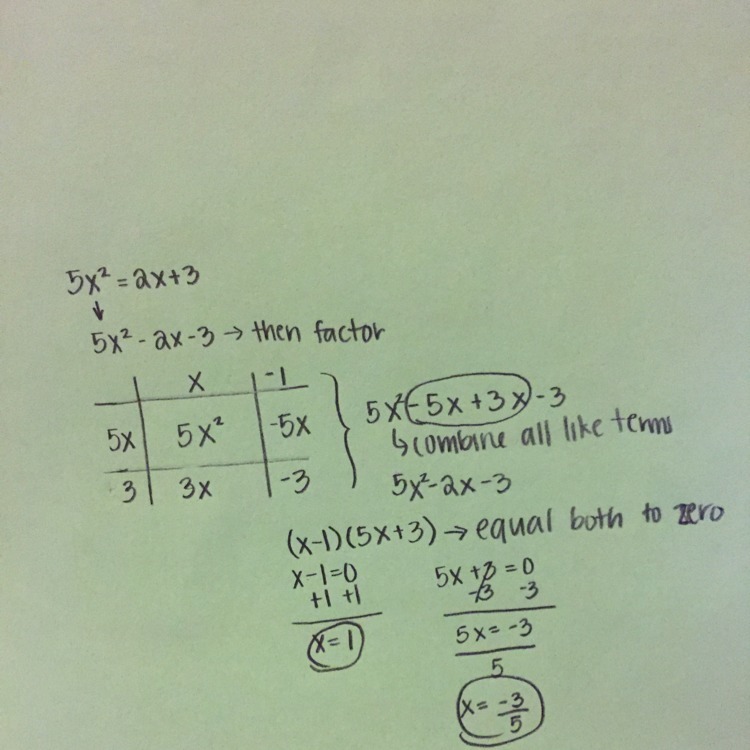 5x² = 2x+3
↓
5x² - 2x - 3 → then factor
x -1
5x 5x² -5x
3 3x -3
5x² - 5x + 3x - 3
↳ combine all like terms
5x² - 2x - 3
(x-1)(5x+3) → equal both to zero
x-1=0
+1 +1
x = 1
5x +3 = 0
-3 -3
5x = -3
5
x = -3/5